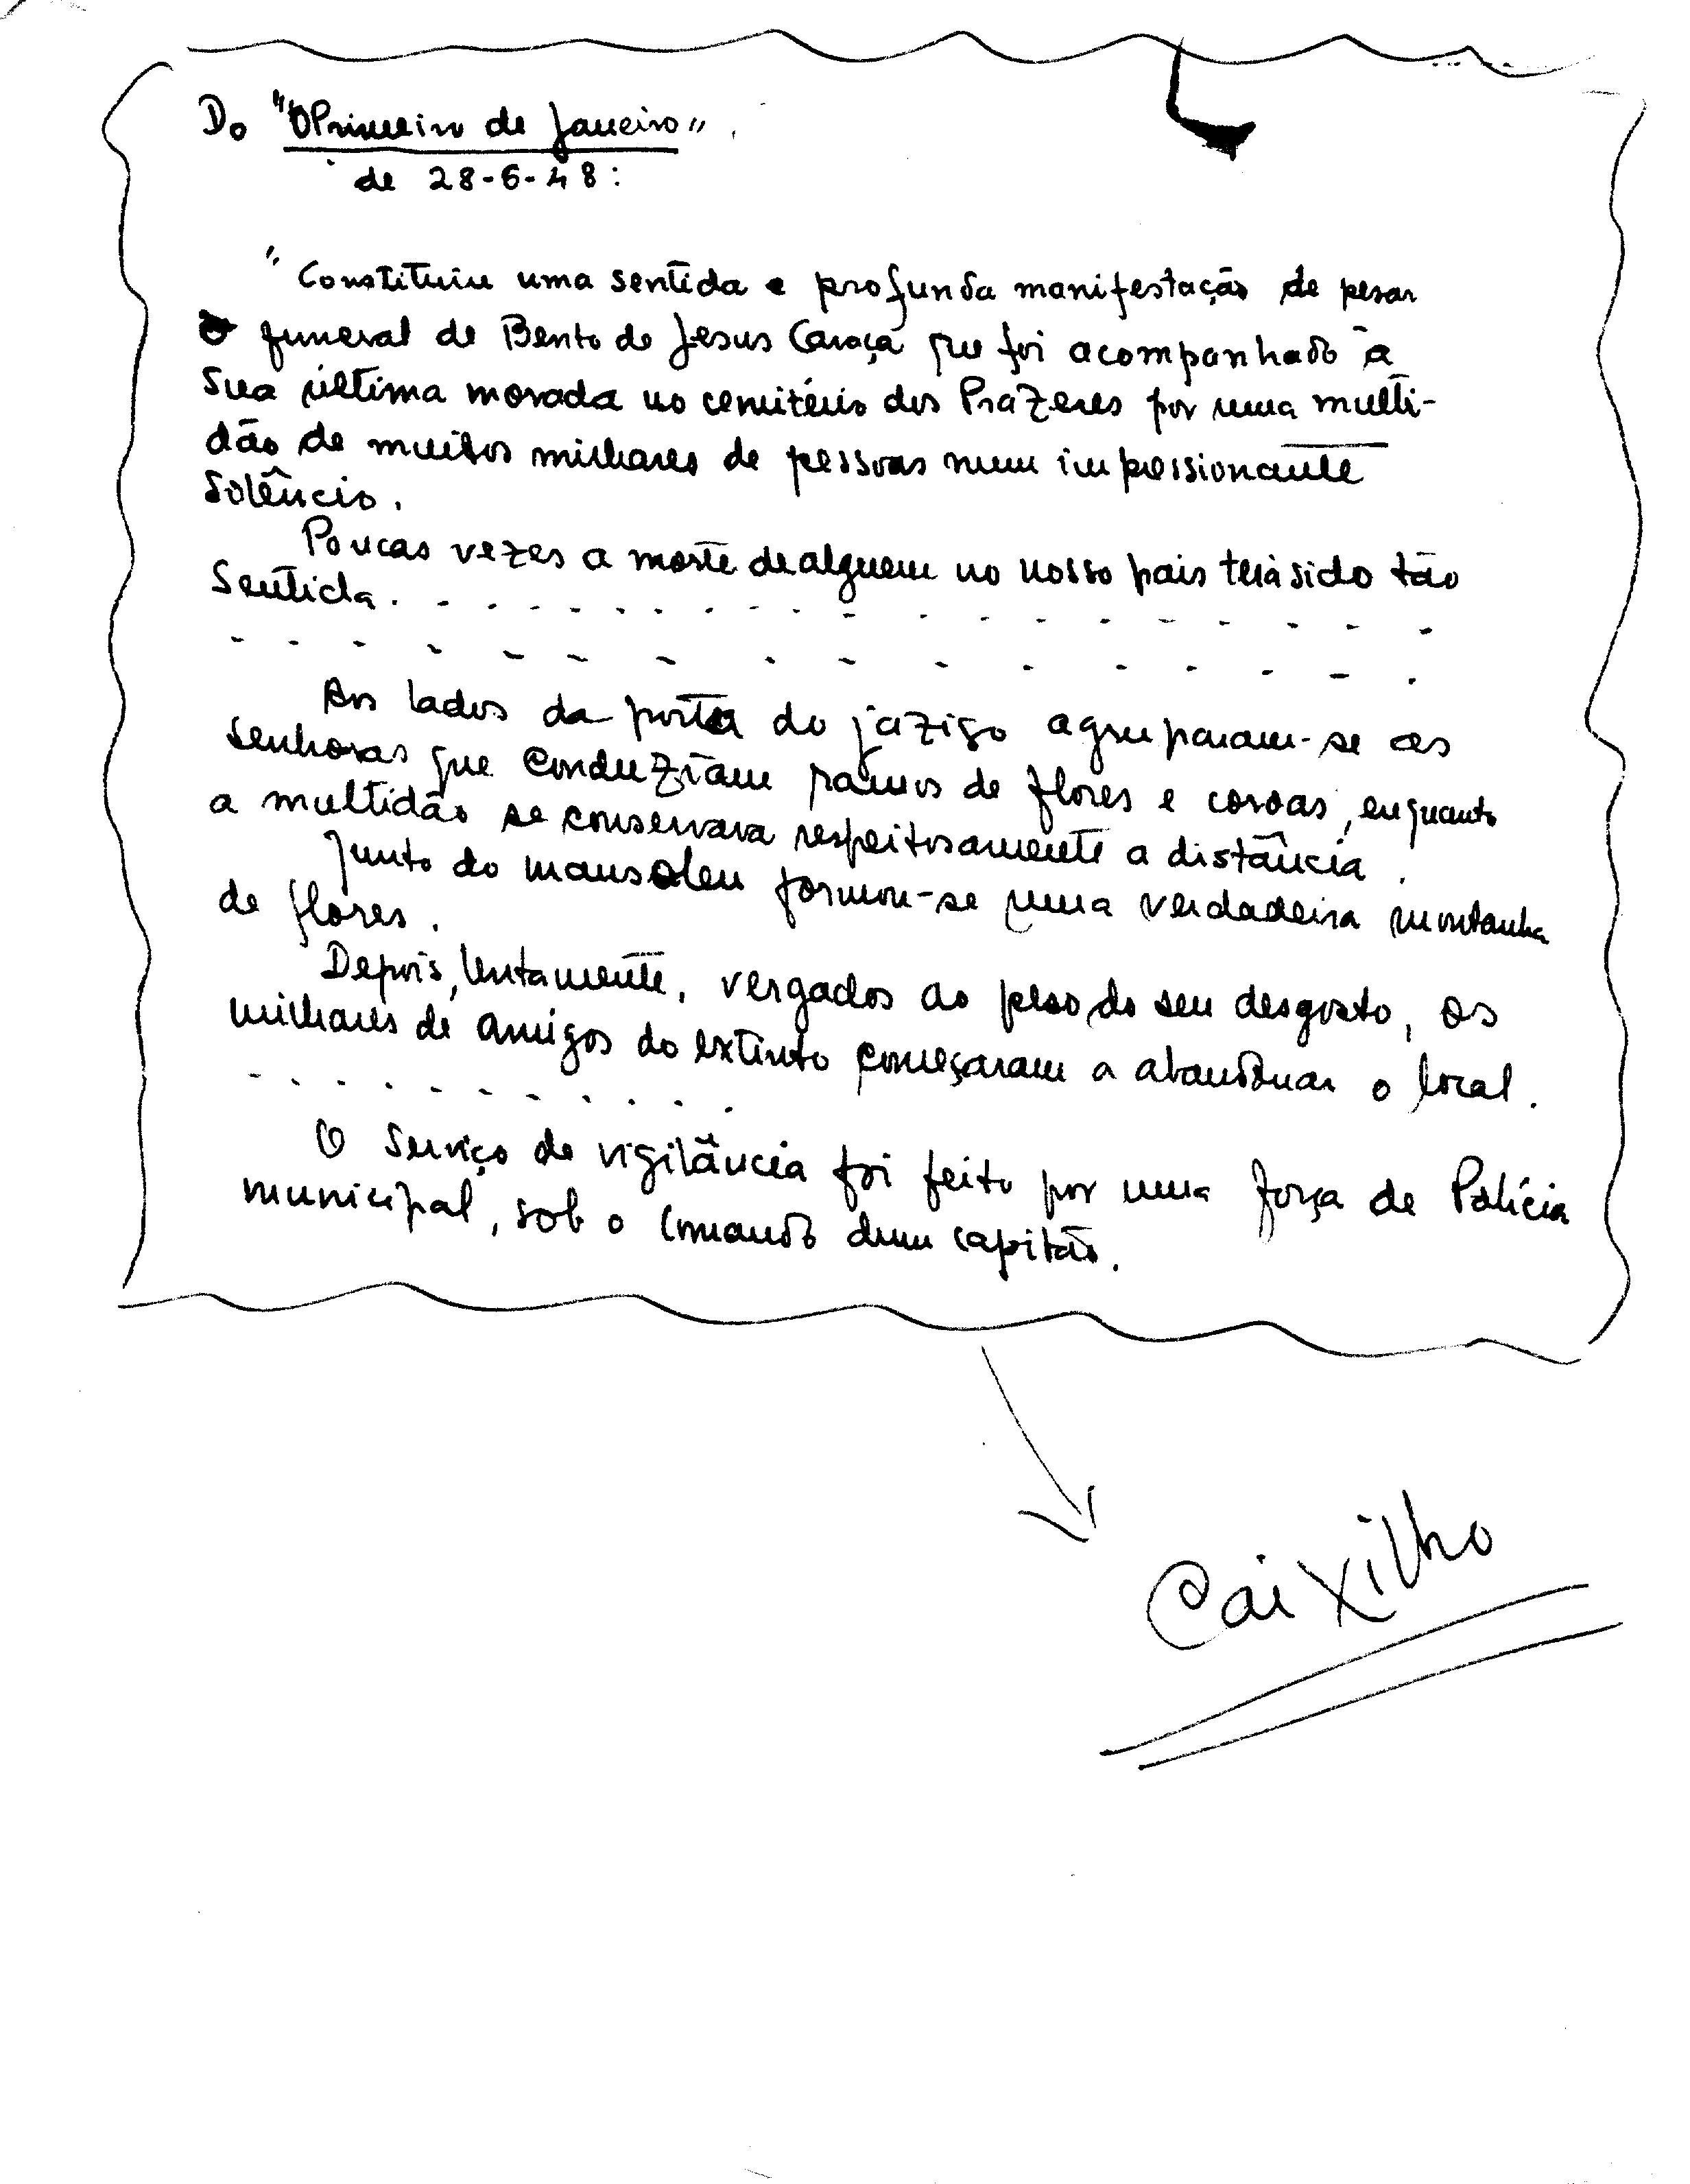 Do "O Primeiro de Janeiro".
de 28-6-48:
"Constituiu uma sentida e profunda manifestação de pesar
o funeral de Bento de Jesus Caraça que foi acompanhado à
sua última morada no cemitério dos Prazeres por uma multi-
dão de muitos milhares de pessoas num impressionante
silêncio.
Poucas vezes a morte de alguem no nosso pais terá sido tão
sentida. . . . . . . . . . . . . . . .
. . . . . . . . . . . . . . . .
Aos lados da porta do jazigo agruparam-se as
senhoras que conduziam ramos de flores e coroas, enquanto
a multidão se conservava respeitosamente a distância.
Junto do mausoleu formou-se uma verdadeira montanha
de flores.
Depois, lentamente, vergados ao peso do seu desgosto, os
milhares de amigos do extinto começaram a abandonar o local.
. . . . . . . . . . . .
O serviço de vigilância foi feito por uma força de Polícia
municipal, sob o comando dum capitão.
Caixilho